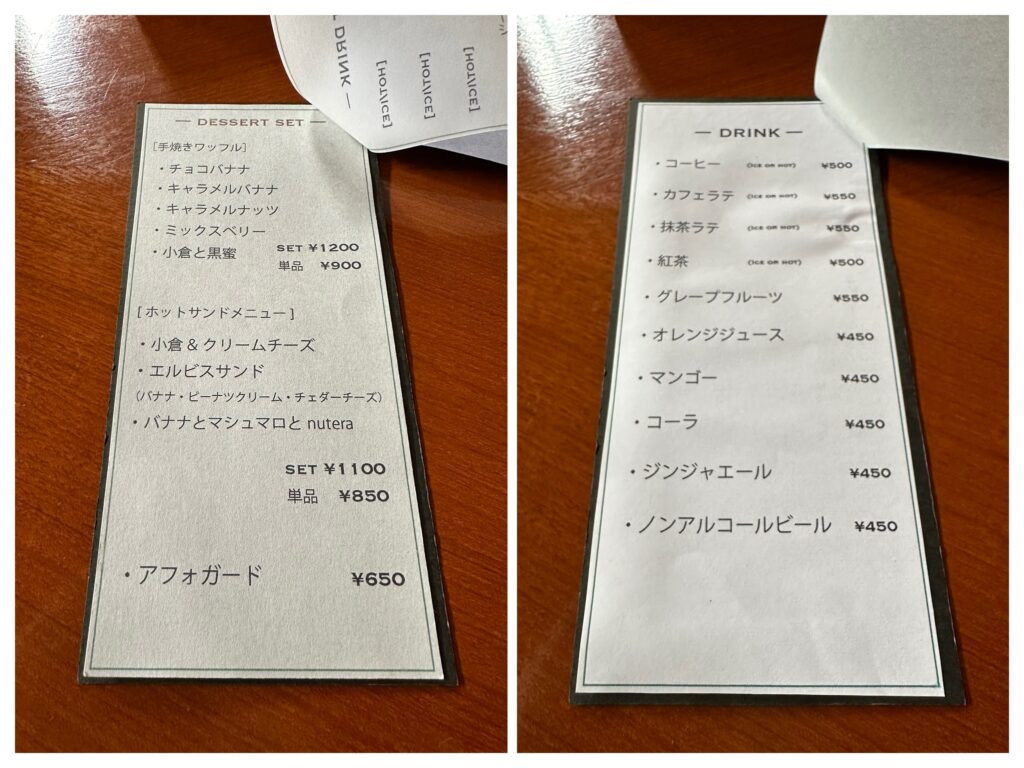 DRINK —
[HOT/ICE]
[HOT/ICE]
[HOT/ICE]
— DESSERT SET —
[手焼きワッフル]
・チョコバナナ
・キャラメルバナナ
・キャラメルナッツ
・ミックスベリー
・小倉と黒蜜 SET ¥1200
単品 ¥900
[ホットサンドメニュー]
・小倉&クリームチーズ
・エルビスサンド
(バナナ・ピーナツクリーム・チェダーチーズ)
・バナナとマシュマロと nutera
SET ¥1100
単品 ¥850
・アフォガード ¥650
— DRINK —
・コーヒー (ICE OR HOT) ¥500
・カフェラテ (ICE OR HOT) ¥550
・抹茶ラテ (ICE OR HOT) ¥550
・紅茶 (ICE OR HOT) ¥500
・グレープフルーツ ¥550
・オレンジジュース ¥450
・マンゴー ¥450
・コーラ ¥450
・ジンジャエール ¥450
・ノンアルコールビール ¥450